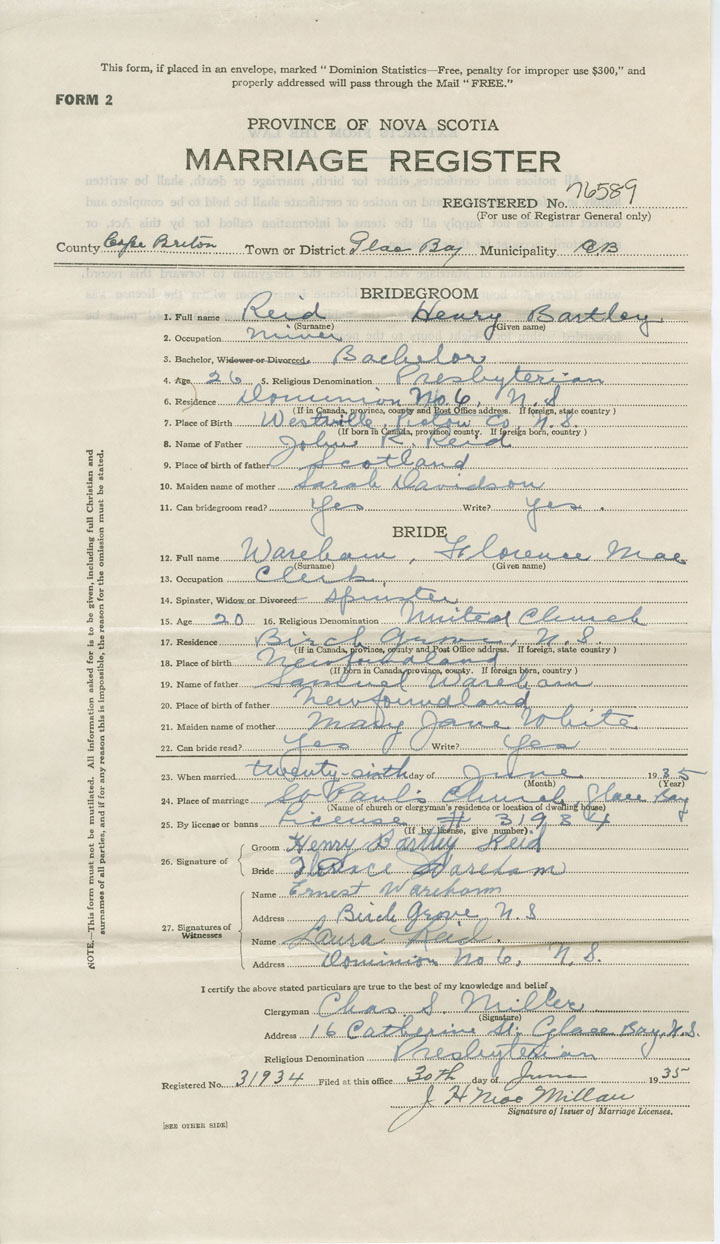 This form, if placed in an envelope, marked "Dominion Statistics—Free, penalty for improper use $300," and
properly addressed will pass through the Mail "FREE."
FORM 2
PROVINCE OF NOVA SCOTIA
MARRIAGE REGISTER
REGISTERED No. 76589
(For use of Registrar General only)
County Cape Breton Town or District Glace Bay Municipality C.B
BRIDEGROOM
1. Full name Reid Henry Bartley
(Surname) (Given name)
2. Occupation Miner
3. Bachelor, Widower or Divorced Bachelor
4. Age 26 5. Religious Denomination Presbyterian
6. Residence Dominion No. 6, N.S
(If in Canada, province, county and Post Office address. If foreign, state country)
7. Place of Birth Westville, Pictou Co. N.S.
(If born in Canada, province, county. If foreign born, country)
8. Name of Father John R. Reid
9. Place of birth of father Scotland
10. Maiden name of mother Sarah Davidson
11. Can bridegroom read? Yes Write? Yes.
BRIDE
12. Full name Wareham, Florence Mae
(Surname) (Given name)
13. Occupation Clerk,
14. Spinster, Widow or Divorced Spinster
15. Age 20 16. Religious Denomination United Church
17. Residence Birch Grove, N.S.
(If in Canada, province, county and Post Office address. If foreign, state country)
18. Place of birth Newfoundland
(If born in Canada, province, county. If foreign born, country)
19. Name of father Samuel Wareham
20. Place of birth of father Newfoundland
21. Maiden name of mother Mary Jane White
22. Can bride read? Yes Write? Yes
23. When married twenty-sixth day of June 1935
(Month) (Year)
24. Place of marriage St Paul's Church, Glace Bay
(Name of church or clergyman's residence or location of dwelling house)
25. By license or banns License # 31934
(If by license, give number)
26. Signature of Groom Henry Bartley Reid
Bride Florence Wareham
27. Signatures of Witnesses
Name Ernest Wareham
Address Birch Grove, N.S
Name Laura Reid.
Address Dominion No 6, N.S.
I certify the above stated particulars are true to the best of my knowledge and belief,
Clergyman Chas S. Miller
(Signature)
Address 16 Catherine St. Glace Bay, N.S.
Religious Denomination Presbyterian
Registered No. 31934 Filed at this office 30th day of June 1935
J H MacMillan
Signature of Issuer of Marriage Licenses.
[SEE OTHER SIDE]
NOTE.—This form must not be mutilated. All information asked for is to be given, including full Christian and
surnames of all parties, and if for any reason this is impossible, the reason for the omission must be stated.